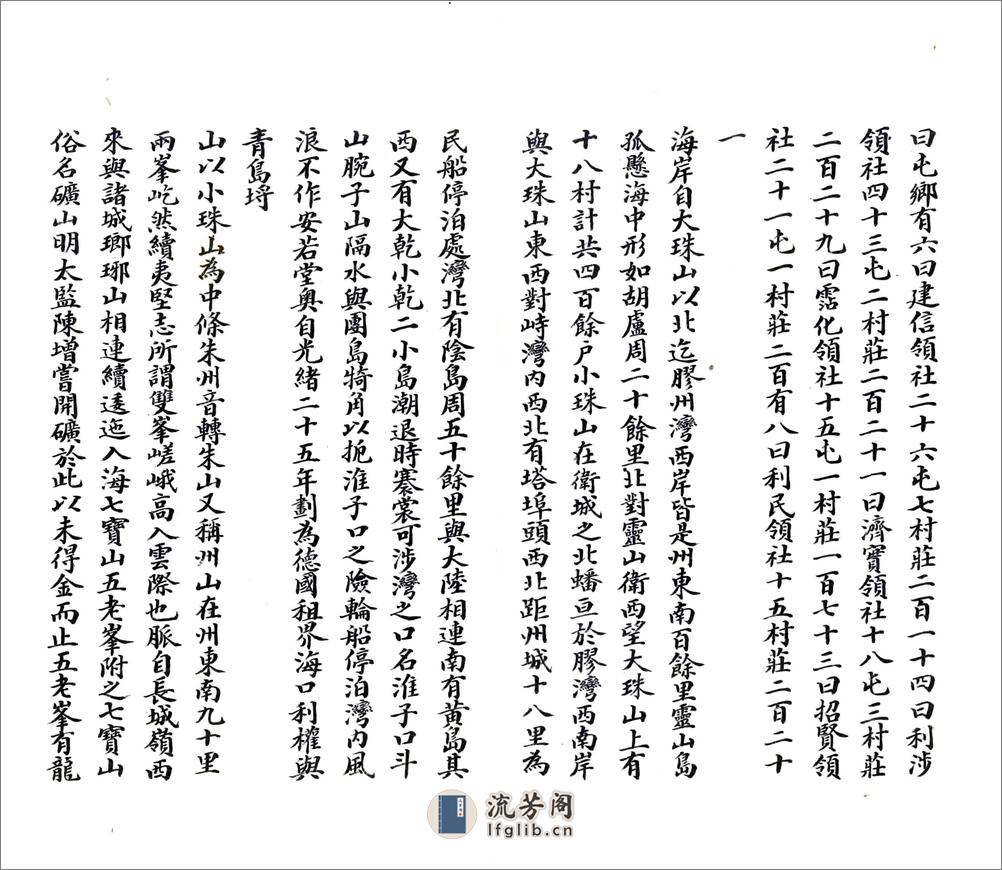 曰屯鄉有六曰建信領社二十六屯七村莊二百一十四曰利涉
領社四十三屯二村莊二百二十一曰濟實領社十八屯三村莊
二百二十九曰霑化領社十五屯一村莊一百七十三曰招賢領
社二十一屯一村莊二百有八曰利民領社十五村莊二百二十
一
海岸自大珠山以北迄膠州灣西岸皆是州東南百餘里靈山島
孤懸海中形如胡盧周二十餘里北對靈山衛西望大珠山上有
十八村計共四百餘戶小珠山在衛城之北蟠亘於膠灣西南岸
與大珠山東西對峙灣內西北有塔埠頭西北距州城十八里為
民船停泊處灣北有陰島周五十餘里與大陸相連南有黃島其
西又有大乾小乾二小島潮退時褰裳可涉灣之口名淮子口斗
山腕子山隔水與團島犄角以扼淮子口之險輪船停泊灣內風
浪不作安若堂奧自光緒二十五年劃為德國租界海口利權與
青島埒
山以小珠山為中條朱州音轉朱山又稱州山在州東南九十里
兩峯屹然續夷堅志所謂雙峯嵯峨高入雲際也脈自長城嶺西
來與諸城瑯琊山相連續逶迤入海七寶山五老峯附之七寶山
俗名礦山明太監陳增嘗開礦於此以未得金而止五老峯有龍
流芳阁
lfglib.cn